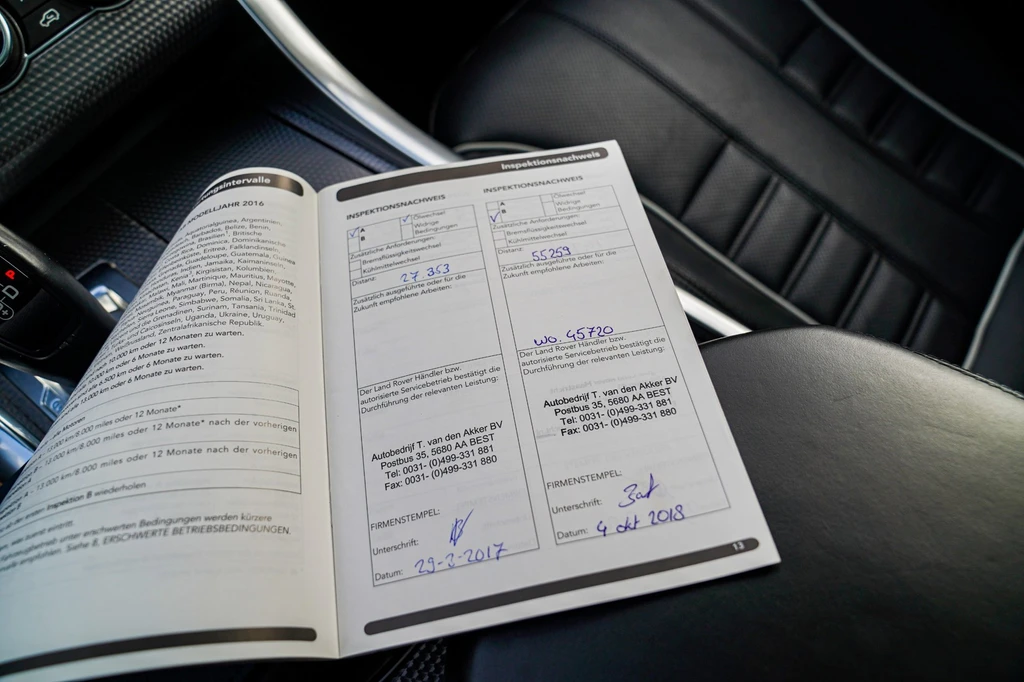 P
D
ngsintervalle
MODELLJAHR 2016
Äquatorialguinea, Argentinien,
Barbados, Belize, Benin,
Brasilien¹, Britische
Rica, Dominica, Dominikanische
Guadeloupe, Guatemala, Guinea
Indien, Jamaika, Kaimaninseln,
Kenia³, Kirgisistan, Kolumbien,
Mali, Martinique, Mauritius, Mayotte,
Myanmar (Birma), Nepal, Nicaragua,
Paraguay, Peru, Réunion, Ruanda,
Sierra Leone, Simbabwe, Somalia, Sri Lanka, St.
und die Grenadinen, Surinam, Tansania, Trinidad
Turks- und Caicosinseln, Uganda, Ukraine, Uruguay,
Weißrussland, Zentralafrikanische Republik.
10.000 km oder 12 Monaten zu warten.
10.000 km oder 6 Monate zu warten.
sind alle 6.500 km oder 6 Monate zu warten.
13.000 km oder 6 Monate zu warten.
Motoren
13.000 km/8.000 miles oder 12 Monate*
13.000 km/8.000 miles oder 12 Monate* nach der vorherigen
A - 13.000 km/8.000 miles oder 12 Monate nach der vorherigen
ersten Inspektion B wiederholen
was zuerst eintritt.
unter erschwerten Bedingungen werden kürzere
empfohlen. Siehe 8, ERSCHWERTE BETRIEBSBEDINGUNGEN.
Inspektionsnachweis
INSPEKTIONSNACHWEIS
A
B
Ölwechsel
Widrige
Bedingungen
Zusätzliche Anforderungen:
Bremsflüssigkeitswechsel
Kühlmittelwechsel
Distanz:
27.353
Zusätzlich ausgeführte oder für die
Zukunft empfohlene Arbeiten:
Der Land Rover Händler bzw.
autorisierte Servicebetrieb bestätigt die
Durchführung der relevanten Leistung:
Autobedrijf T. van den Akker BV
Postbus 35, 5680 AA BEST
Tel: 0031- (0)499-331 881
Fax: 0031- (0)499-331 880
FIRMENSTEMPEL:
Unterschrift:
Datum: 29-2-2017
INSPEKTIONSNACHWEIS
A
B
Ölwechsel
Widrige
Bedingungen
Zusätzliche Anforderungen:
Bremsflüssigkeitswechsel
Kühlmittelwechsel
Distanz:
55259
Zusätzlich ausgeführte oder für die
Zukunft empfohlene Arbeiten:
WO. 45720
Der Land Rover Händler bzw.
autorisierte Servicebetrieb bestätigt die
Durchführung der relevanten Leistung:
Autobedrijf T. van den Akker BV
Postbus 35, 5680 AA BEST
Tel: 0031- (0)499-331 881
Fax: 0031- (0)499-331 880
FIRMENSTEMPEL:
Unterschrift:
Datum: 4 okt 2018
13